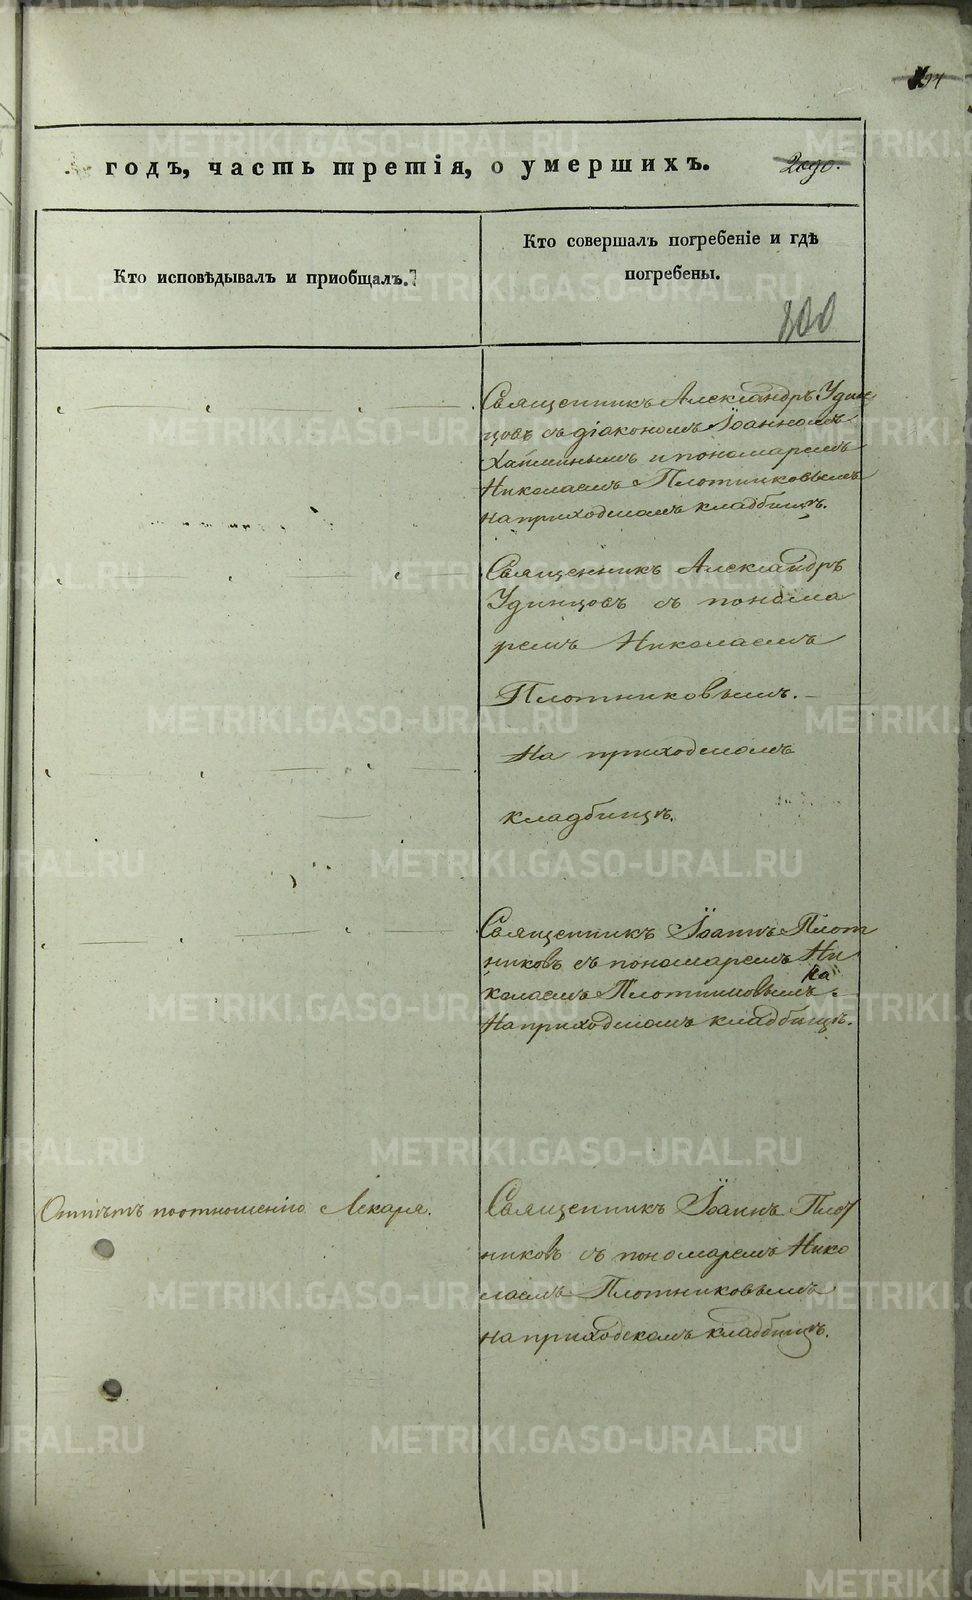 годъ, часть третія, о умершихъ.
Кто исповѣдывалъ и приобщалъ.
Кто совершалъ погребеніе и гдѣ
погребены.
200
Священникъ Александръ Удин
цовъ съ діакономъ Іоанномъ
и пономаремъ
Николаемъ Плотниковымъ
на приходскомъ кладбищѣ.
Священникъ Александръ
Удинцовъ съ понома
ремъ Николаемъ
Плотниковымъ.
На приходскомъ
кладбищѣ.
Священникъ Іоаннъ Плот
никовъ съ пономаремъ Ни
колаемъ Плотниковымъ
На приходскомъ кладбищѣ.
Отпѣтъ по отношенію Лекаря.
Священникъ Іоаннъ Плот
никовъ съ пономаремъ Нико
лаемъ Плотниковымъ
на приходскомъ кладбищѣ.
METRIKI.GASO-URAL.RU